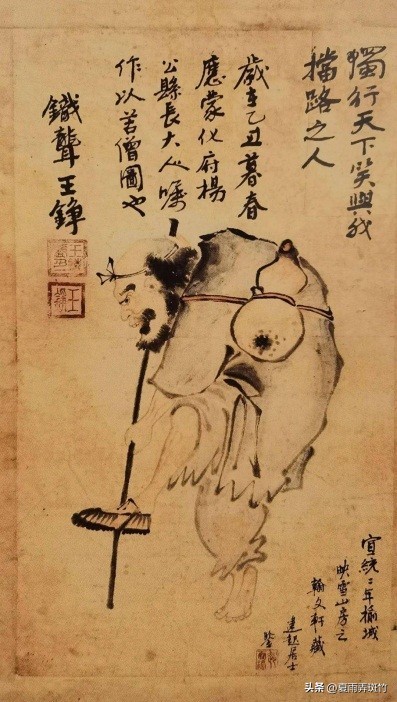 獨行天下笑與我
擋路之人
歲在乙丑暮春
應蒙化府楊
公縣長大人囑
作以苦僧圖也
鐵聾王錚
宣統二年榆城
映雪山房云
翰文軒藏
居士
鑒
头条 @夏雨弄斑竹